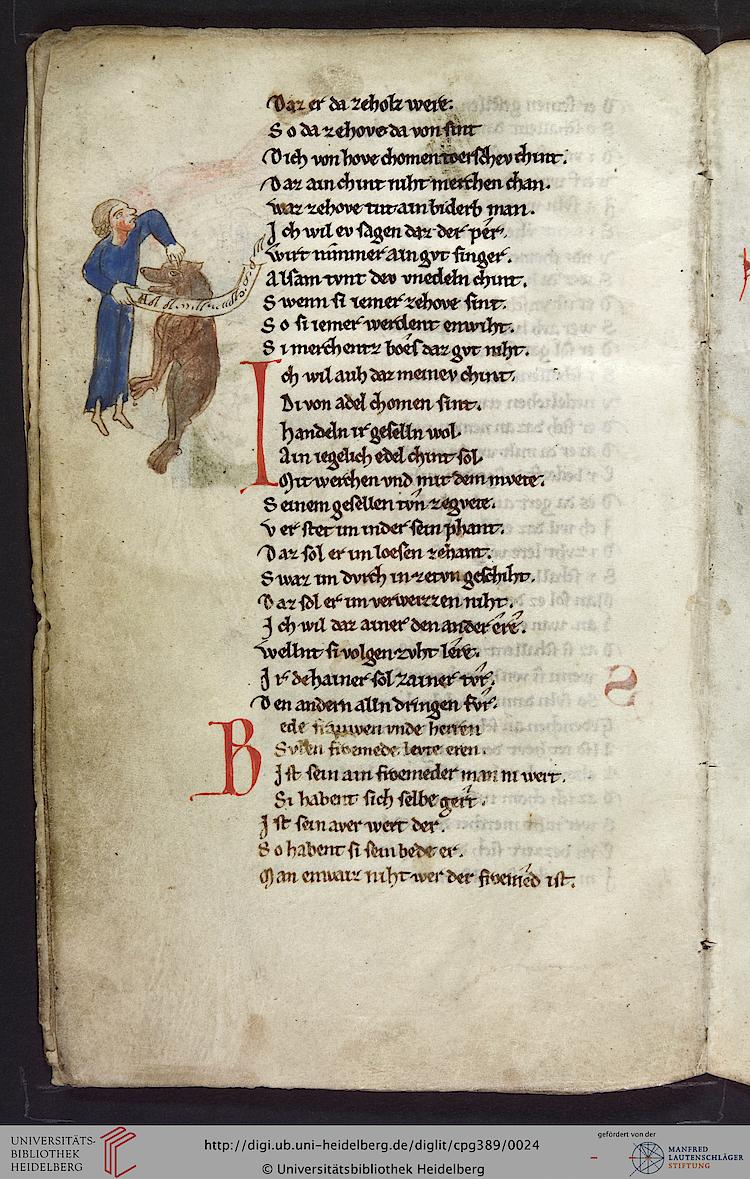 Daz er da zeholz were.
So da zehove da von sint
Dich von hove chomen toerschev chint.
Daz ain chint niht merchen chan.
waz zehove tut ain biderb man.
Ich wil ev sagen daz der per.
wirt nimmer ain gvt singer.
Alsam tvnt dev vnedeln chint.
Swenn si iemer zehove sint.
So si iemer werdent enwiht.
Si merchentz boes daz gvt niht.
Ich wil auh daz meinev chint.
Di von adel chomen sint.
handeln ir geselln wol.
Ain iegelich edel chint sol
Mit werchen vnd mit dem mvete.
Seinem gesellen tvn zegvete.
verstet im inder sein phant.
Daz sol er im loesen zehant.
Swaz im dvrch inzetvn geschiht.
Daz sol er im verweizzen niht.
Ich wil daz ainer den ander ere.
wellnt si volgen zvht lere.
Ir dehainer sol zainer tvr.
Den andern alln dringen fvr.
Bede frawen vnde herren
Svlen froemede levte eren.
Ist sein ain froemeder man ni wert.
Si habent sich selbe gert.
Ist sein aver wert der.
So habent si sein bede er.
Man enwaiz niht wer der froemed ist.
S
UNIVERSITÄTS-
BIBLIOTHEK
HEIDELBERG
http://digi.ub.uni-heidelberg.de/diglit/cpg389/0024
© Universitätsbibliothek Heidelberg
gefördert von der
MANFRED
LAUTENSCHLÄGER
STIFTUNG